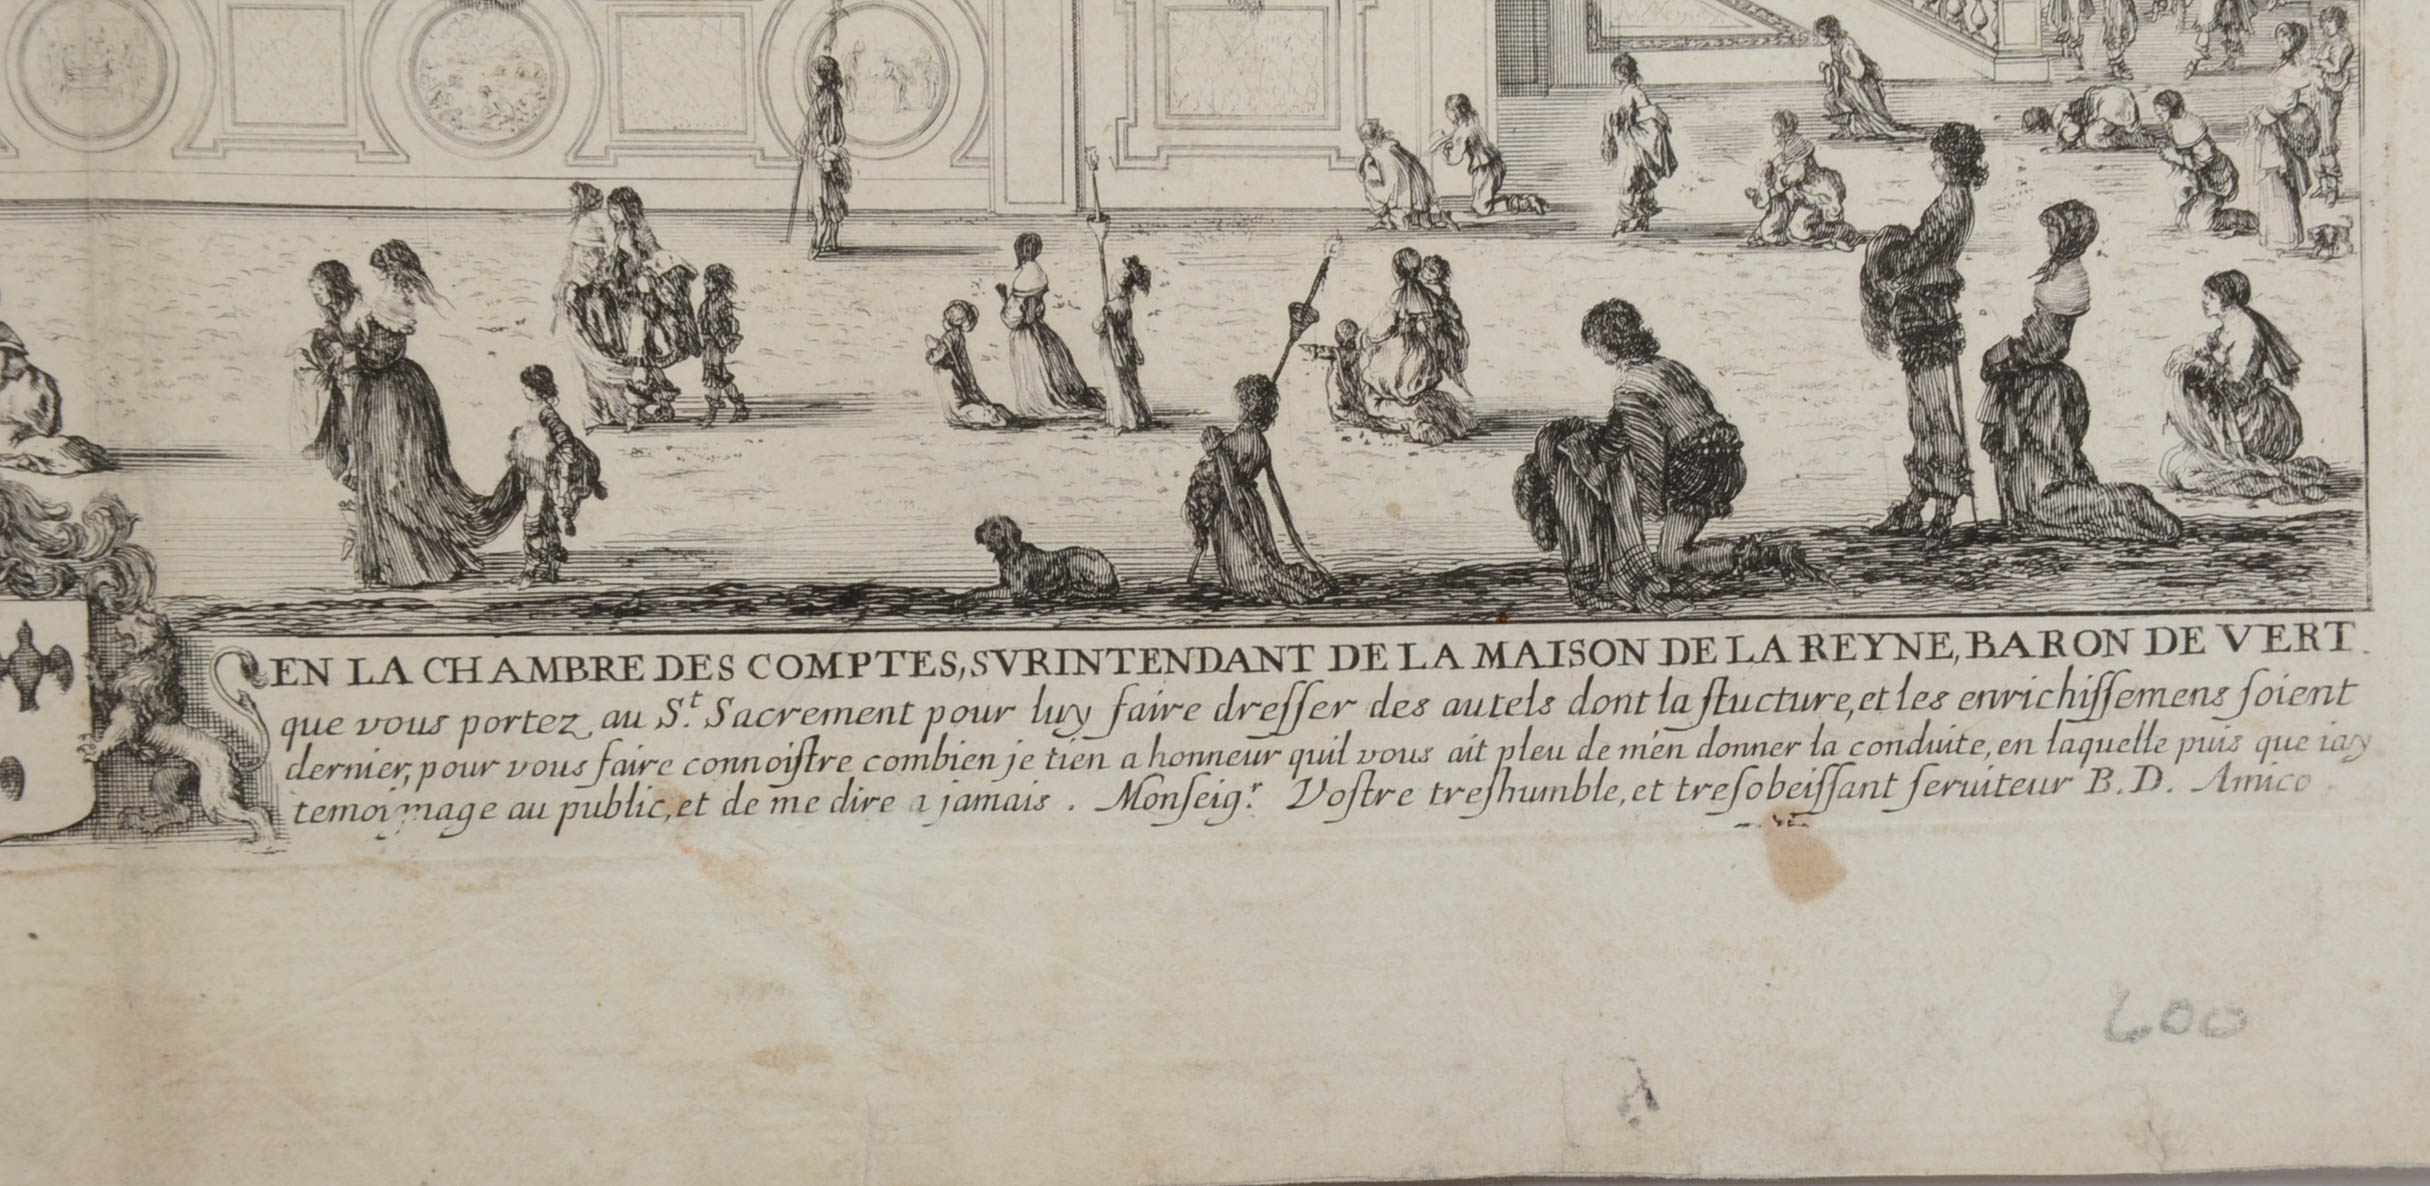 EN LA CHAMBRE DES COMPTES, SVRINTENDANT DE LA MAISON DE LA REYNE, BARON DE VERT.
que vous portez au S.t Sacrement pour luy faire dreſſer des autels dont la ſtucture, et les enrichiſſemens ſoient
dernier, pour vous faire connoiſtre combien je tien a honneur quil vous ait pleu de m'en donner la conduite, en laquelle puis que iay
temoignage au public, et de me dire a jamais. Monſeig.r Voſtre treſhumble, et treſobeiſſant ſeruiteur B. D. Amico.
600